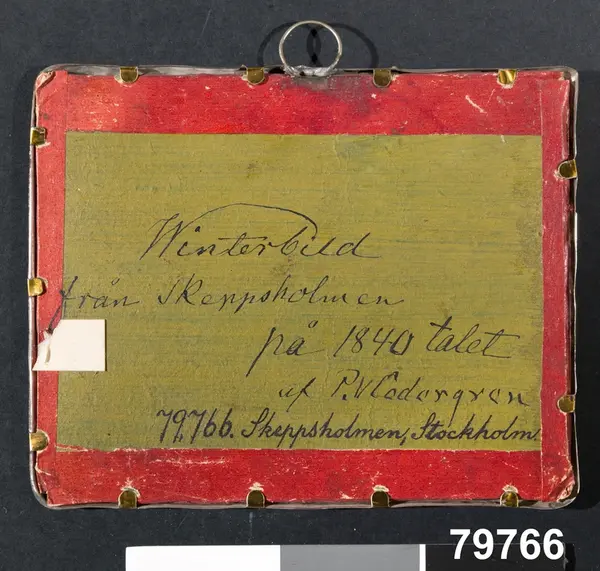 Winterbild
från Skeppsholmen
på 1840 talet
af P.V Cedergren
79,766. Skeppsholmen, Stockholm.
79766